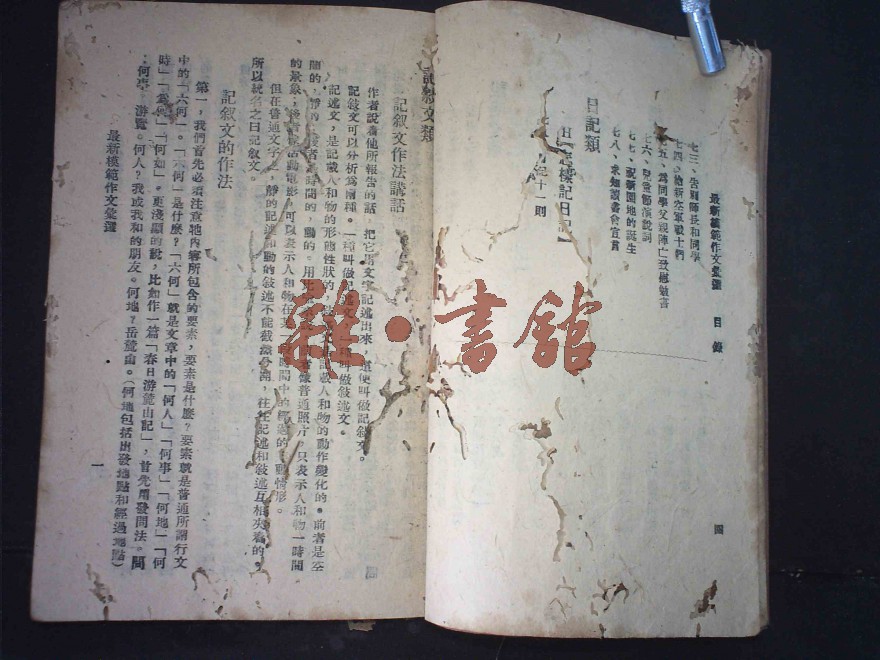 最新模範作文彙選 目錄
七三、告別師長和同學
七四、給新空軍戰士們
七五、爲同學父親陣亡致慰勉書
七六、兒童節演說詞
七七、祝新園地的誕生
七八、求知讀書會宣言
日記類
樓記日記】
十一則
四
記敘文類
記敘文作法講話
作者說着他所報告的話，把它用文字記述出來，這便叫做記敘文。
記敘文可以分析爲兩種。一種叫做記述文，一種叫做敘述文。
記述文，是記載人和物的形態性狀的，記載人和物的動作變化的。前者是空
間的，靜的，後者是時間的，動的。用比 者像普通照片，只表示人和物一時間
的景象；後者像活動電影，可以表示人和物在某 時間中的經過的 動情形。
但在普通文字上，靜的記述和動的敘述不能截然分開，往往記述和敘述互相夾着的，
所以統名之曰記敘文。
記敘文的作法
第一，我們首先必須注意牠內容所包含的要素，要素是什麼？要素就是普通所謂行文
中的「六何」。「六何」是什麼？「六何」就是文章中的「何人」「何事」「何地」「何
時」「爲何」「何如」。更淺顯的說，比如作一篇「春日游麓山記」，首先用發問法。問
：何事。游覽。何人？我或我和的朋友。何地？岳麓山。（何地包括出發地點和經過地點）
最新模範作文彙選
一